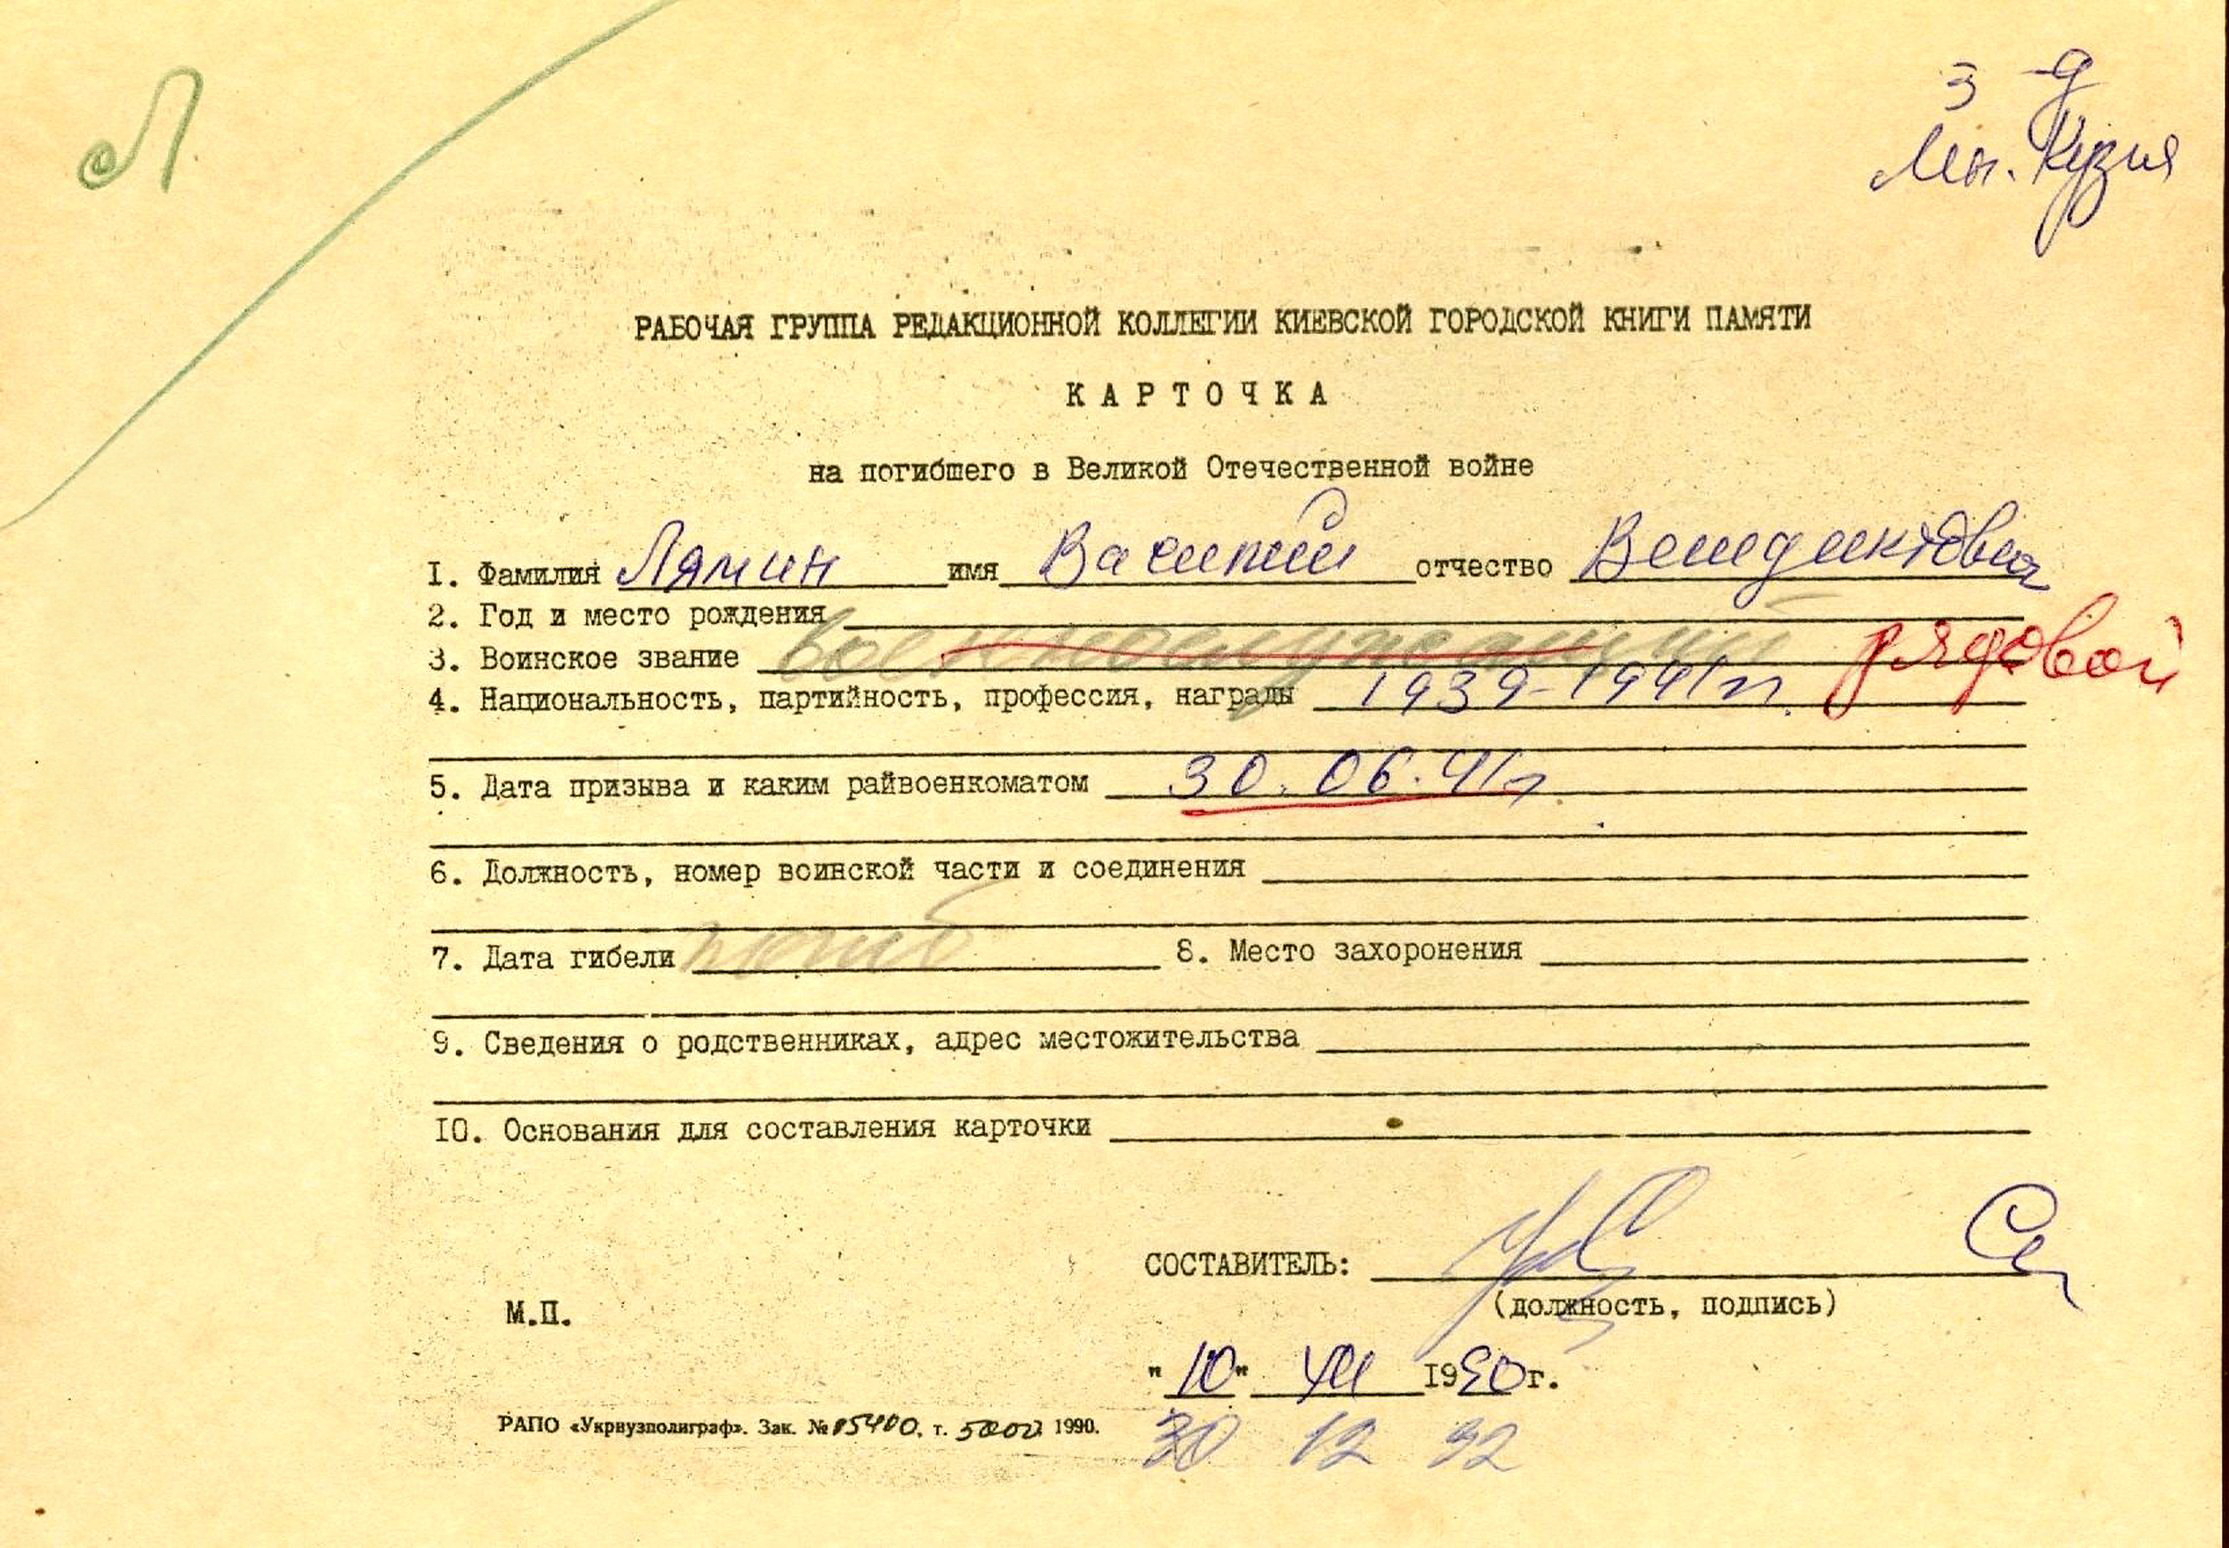 Л
з-д
Мн. Кузня
РАБОЧАЯ ГРУППА РЕДАКЦИОННОЙ КОЛЛЕГИИ КИЕВСКОЙ ГОРОДСКОЙ КНИГИ ПАМЯТИ
КАРТОЧКА
на погибшего в Великой Отечественной войне
I. Фамилия Лямин имя Василий отчество Венедиктович
2. Год и место рождения
3. Воинское звание военнослужащий рядовой
4. Национальность, партийность, профессия, награды 1939-1941гг.
5. Дата призыва и каким райвоенкоматом 30.06.41г
6. Должность, номер воинской части и соединения
7. Дата гибели погиб 8. Место захоронения
9. Сведения о родственниках, адрес местожительства
IO. Основания для составления карточки
СОСТАВИТЕЛЬ:
(должность, подпись)
М.П.
"10" XII 1990г.
РАПО «Укрвузполиграф». Зак. № 05400, т. 5000 1990.
30 12 92